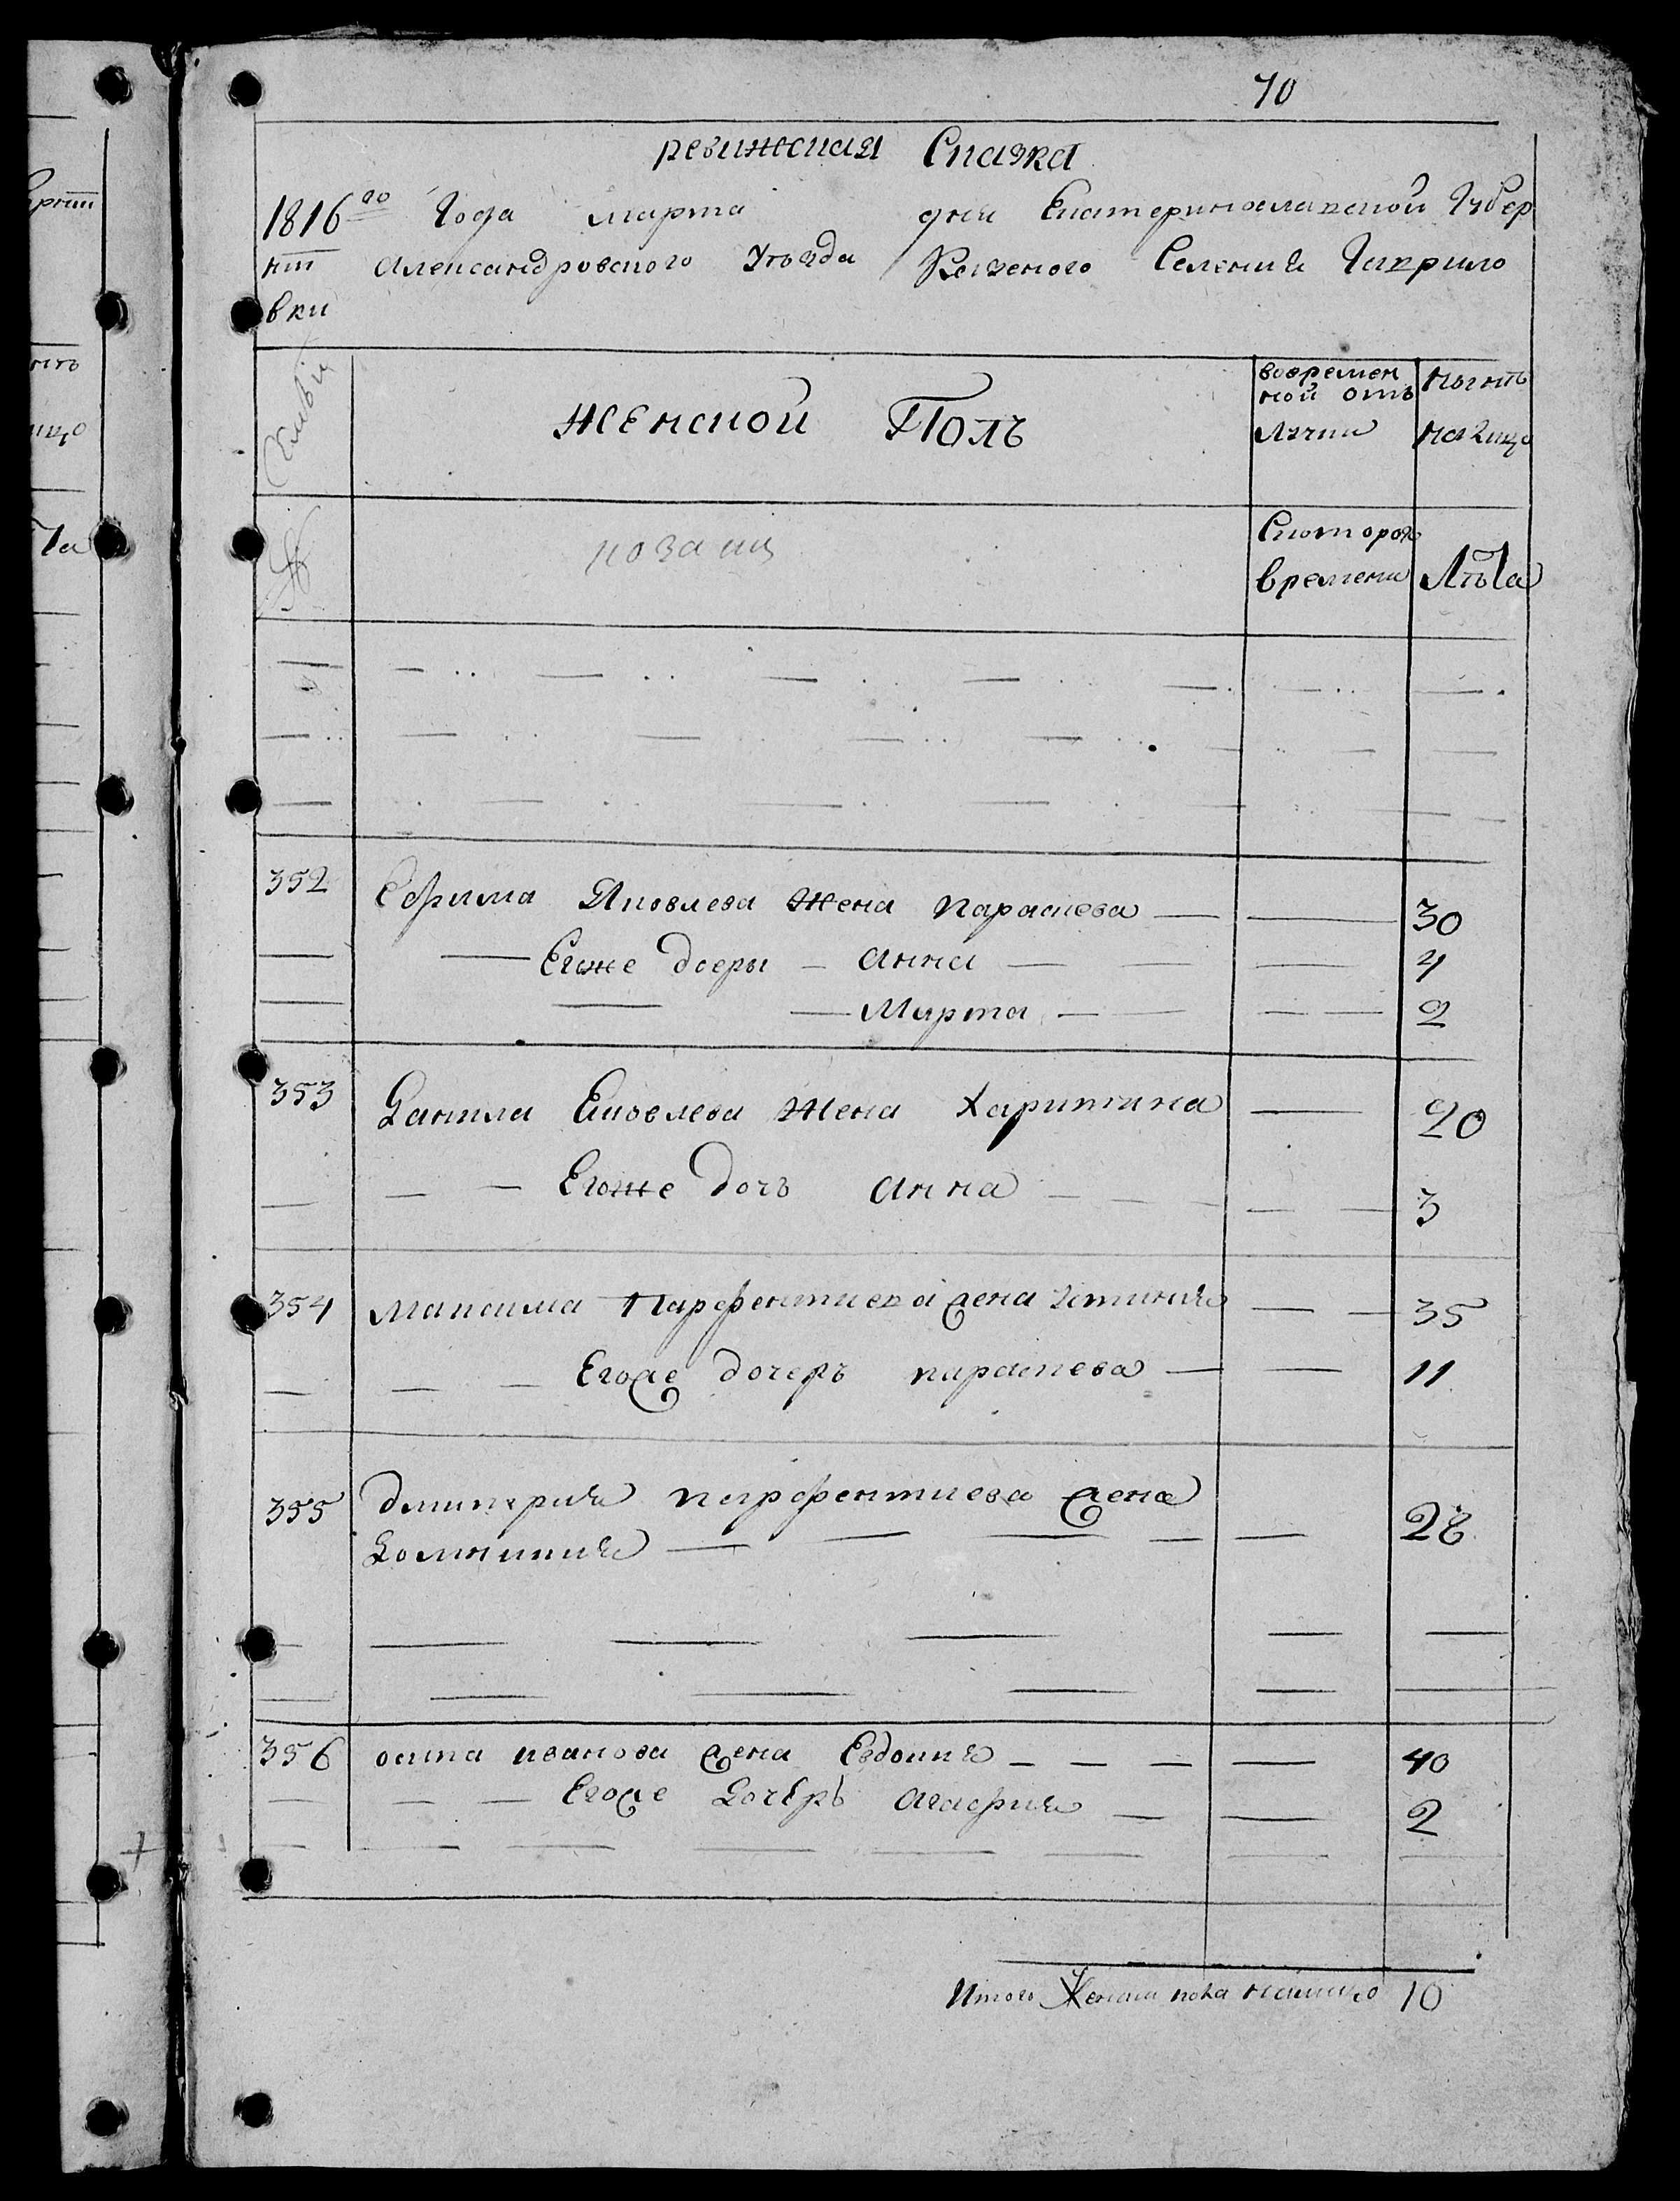 70
ревижская Сказка
1816го Года марта дня Екатеринославской Губер
нїи Александровского Уѣзда Казеного Селения Гаврило
вки
Семьи
женской Полъ
вовремен
ной отъ
лучки
нынѣ
налицо
№
козаки
Скоторого
времени
Лѣта
352 Ефрима Яковлева жена параскева 30
Егоже дочеры Анна 4
Марта 2
353 Данила Яковлева жена Харитина 20
Егоже дочь Анна 3
354 Максима Парфентиева жена Устиния 35
Егоже дочерь параскева 11
355 дмитрия парфентиева жена
Домникия 28
356 осипа иванова жена Евдокия 40
Егоже Дочерь Агафия 2
Итого Женска пола налицо 10